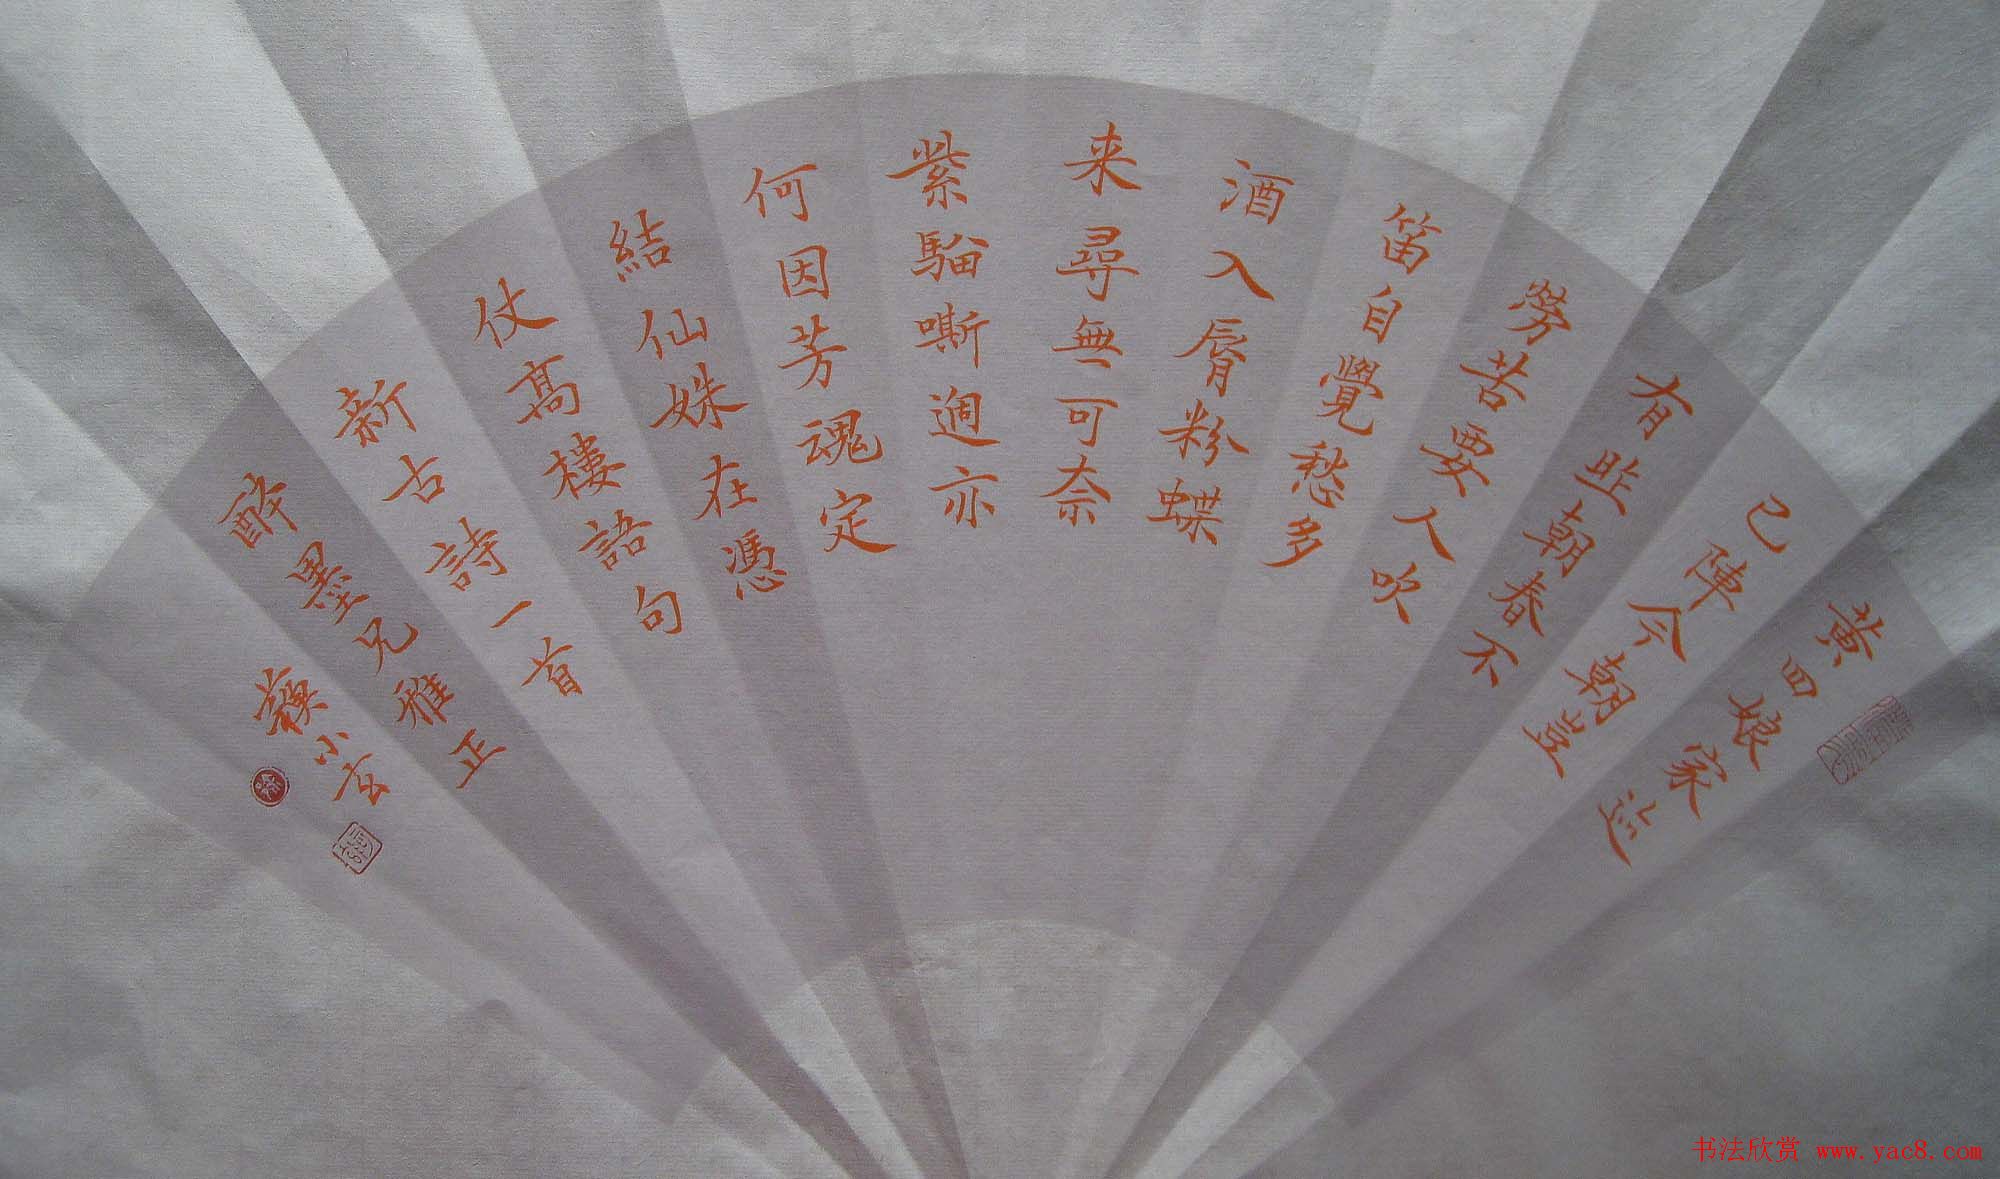 黄四娘家迹
已陳今朝豈
有昨朝春不
勞苦要人吹
笛自覺愁多
酒入脣粉蝶
来尋無可奈
紫騮嘶過亦
何因芳魂定
結仙姝在憑
仗高樓語句
新古詩一首
醉墨兄雅正
小玄
书法欣赏 www.yac8.com